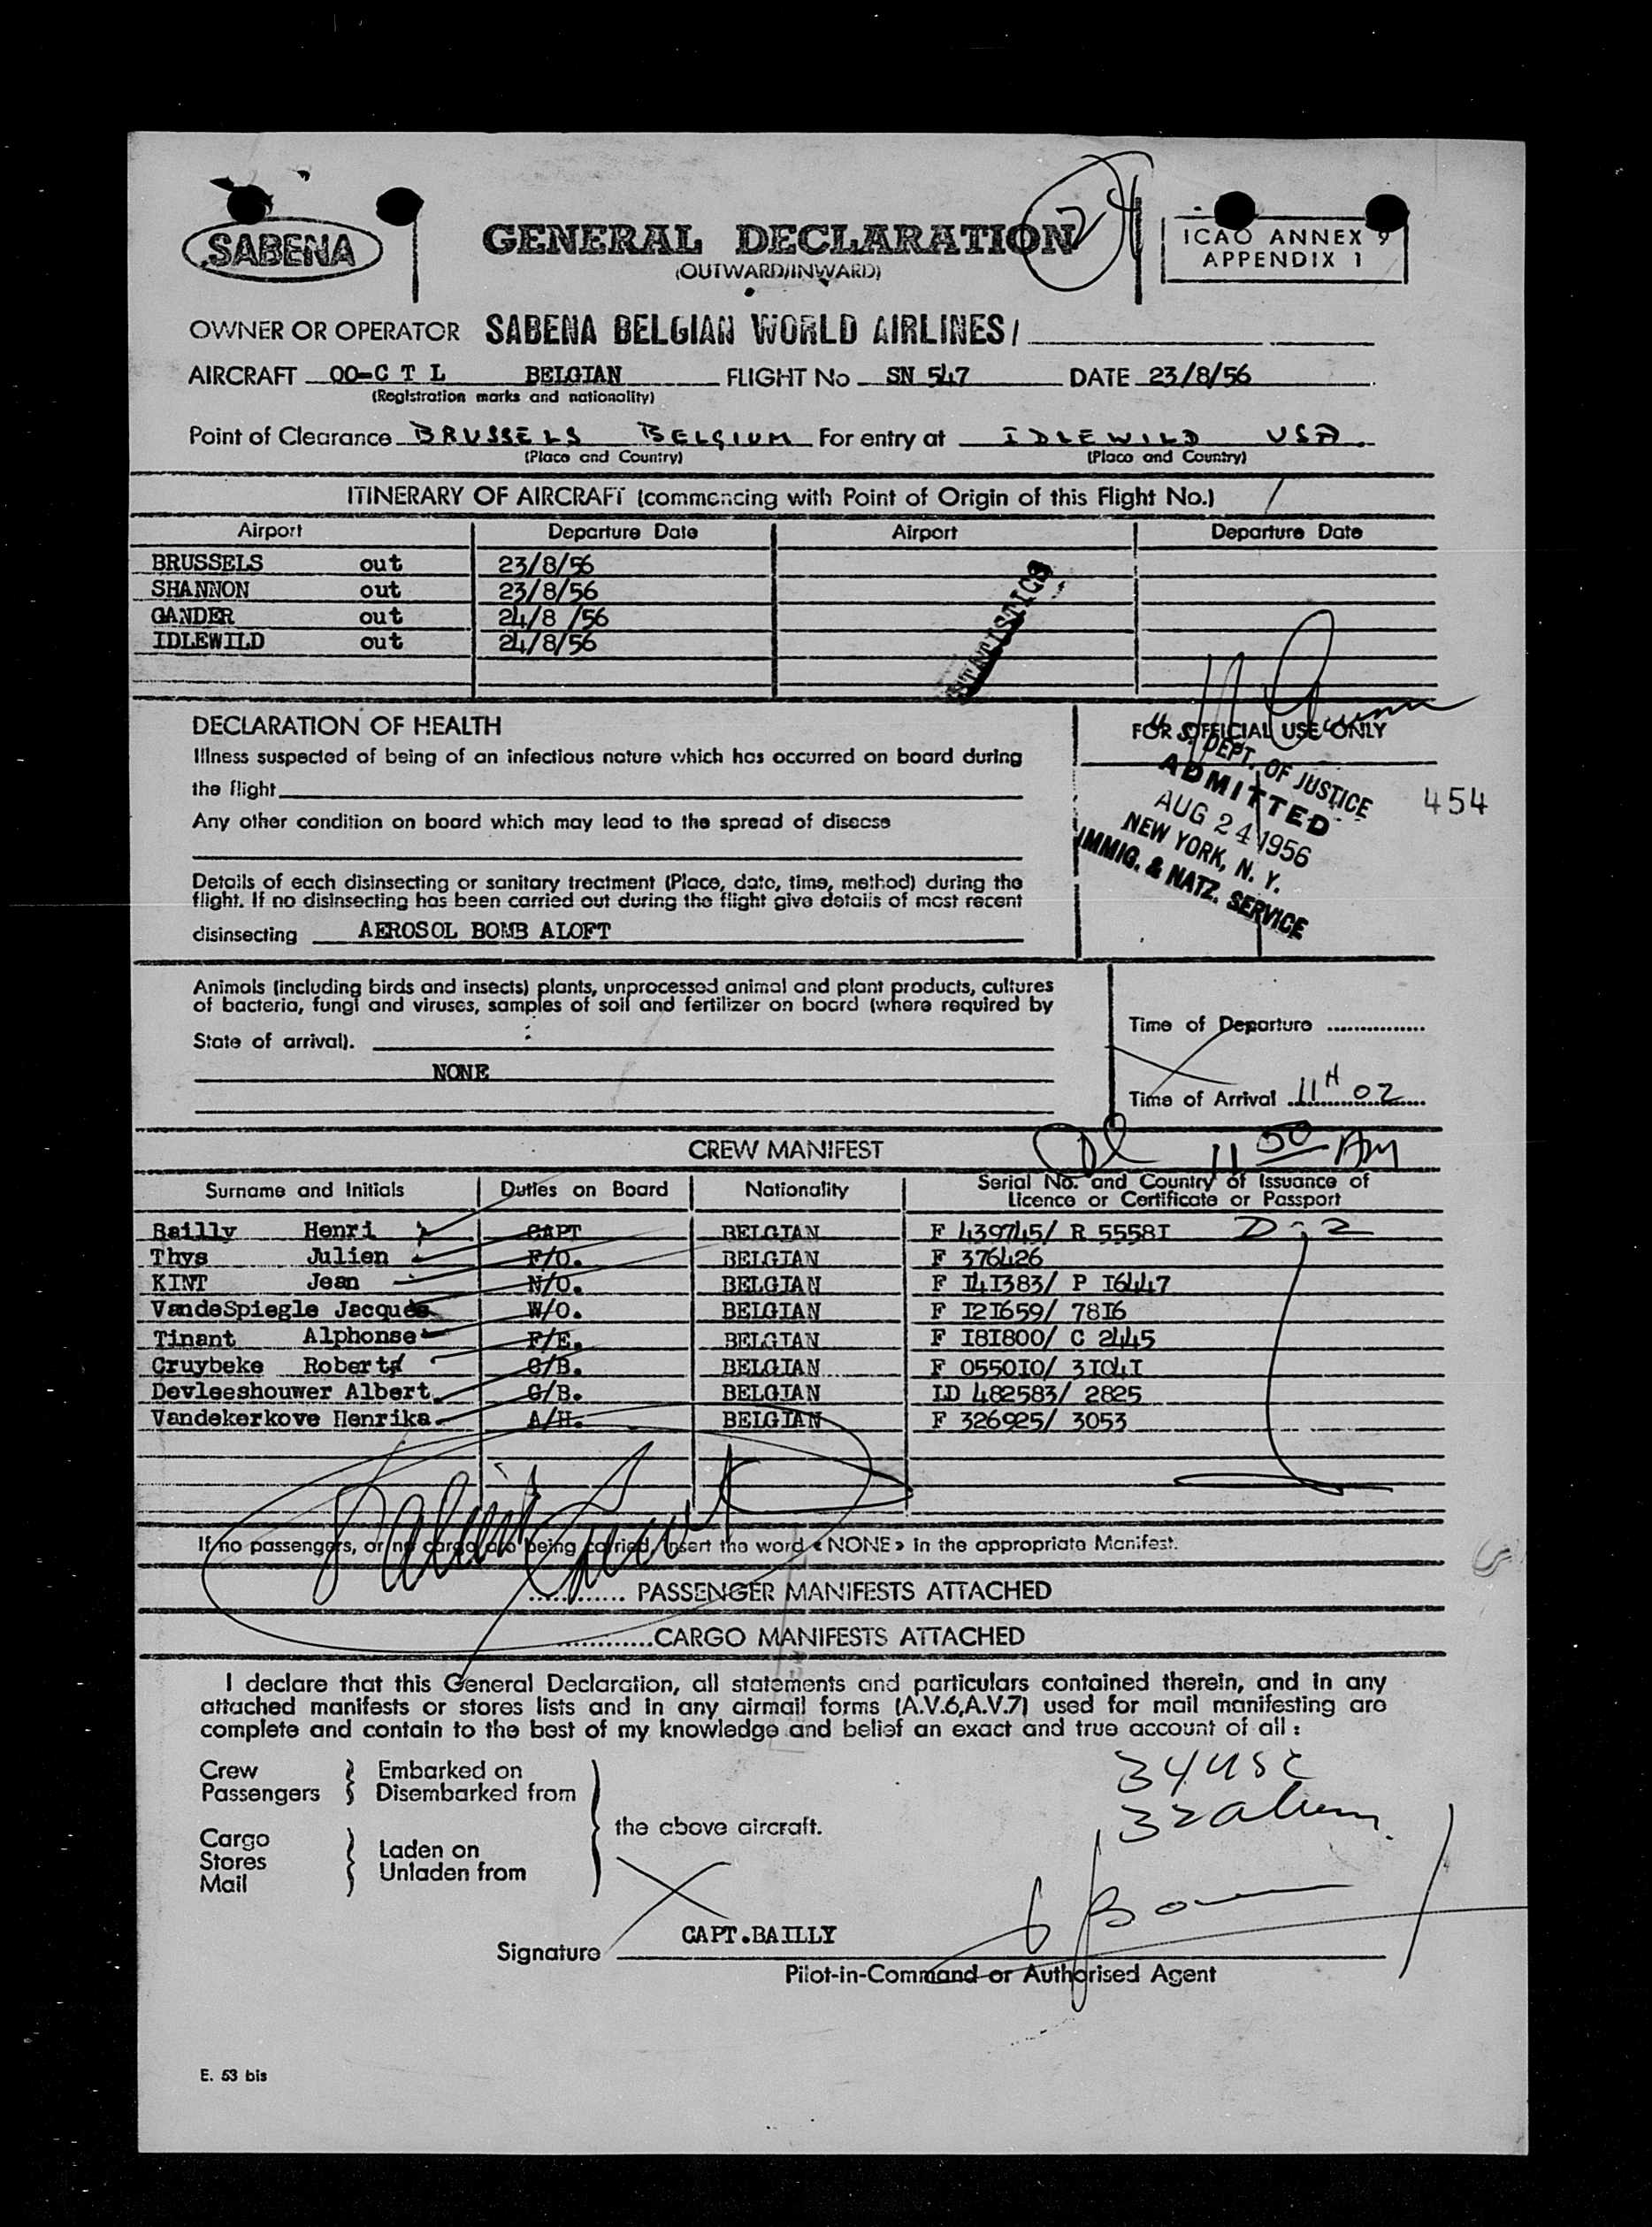 SABENA
GENERAL DECLARATION
(OUTWARD/INWARD)
24
ICAO ANNEX 9
APPENDIX 1
OWNER OR OPERATOR SABENA BELGIAN WORLD AIRLINES/
AIRCRAFT OO-C T L BELGIAN FLIGHT No SN 547 DATE 23/8/56
(Registration marks and nationality)
Point of Clearance BRUSSELS BELGIUM For entry at IDLEWILD USA.
(Place and Country) (Place and Country)
ITINERARY OF AIRCRAFT (commencing with Point of Origin of this Flight No.)
Airport Departure Date Airport Departure Date
BRUSSELS out 23/8/56
SHANNON out 23/8/56
GANDER out 24/8 /56
IDLEWILD out 24/8/56
STATISTICS
DECLARATION OF HEALTH
Illness suspected of being of an infectious nature which has occurred on board during
the flight
Any other condition on board which may lead to the spread of disease
Details of each disinsecting or sanitary treatment (Place, date, time, method) during the
flight. If no disinsecting has been carried out during the flight give details of most recent
disinsecting AEROSOL BOMB ALOFT
FOR OFFICIAL USE ONLY
U. S. DEPT. OF JUSTICE
ADMITTED
AUG 24 1956
NEW YORK, N. Y.
IMMIG. & NATZ. SERVICE
454
Animals (including birds and insects) plants, unprocessed animal and plant products, cultures
of bacteria, fungi and viruses, samples of soil and fertilizer on board (where required by
State of arrival).
NONE
Time of Departure
Time of Arrival 11H 02
11 50 AM
CREW MANIFEST
Surname and Initials Duties on Board Nationality Serial No. and Country of Issuance of
Licence or Certificate or Passport
Bailly Henri CAPT BELGIAN F 439745/ R 5558I D-2
Thys Julien F/O. BELGIAN F 376426
KINT Jean N/O. BELGIAN F I4I383/ P I6447
VandeSpiegle Jacques W/O. BELGIAN F I2I659/ 78I6
Tinant Alphonse F/E. BELGIAN F I8I800/ C 2445
Cruybeke Robert C/B. BELGIAN F 0550I0/ 3I04I
Devleeshouwer Albert. C/B. BELGIAN ID 482583/ 2825
Vandekerkove Henrika. A/H. BELGIAN F 326925/ 3053
If no passengers, or no cargo are being carried, insert the word « NONE » in the appropriate Manifest.
PASSENGER MANIFESTS ATTACHED
CARGO MANIFESTS ATTACHED
I declare that this General Declaration, all statements and particulars contained therein, and in any
attached manifests or stores lists and in any airmail forms (A.V.6,A.V.7) used for mail manifesting are
complete and contain to the best of my knowledge and belief an exact and true account of all :
Crew
Passengers
Embarked on
Disembarked from
Cargo
Stores
Mail
Laden on
Unladen from
the above aircraft.
34 USC
32 alien
CAPT.BAILLY
Signature
Pilot-in-Command or Authorised Agent
E. 53 bis